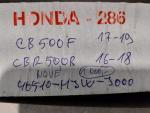 HONDA - 286
CB500F 17-19
CBR500R 16-18
NOVÉ
46510-MJW-J000